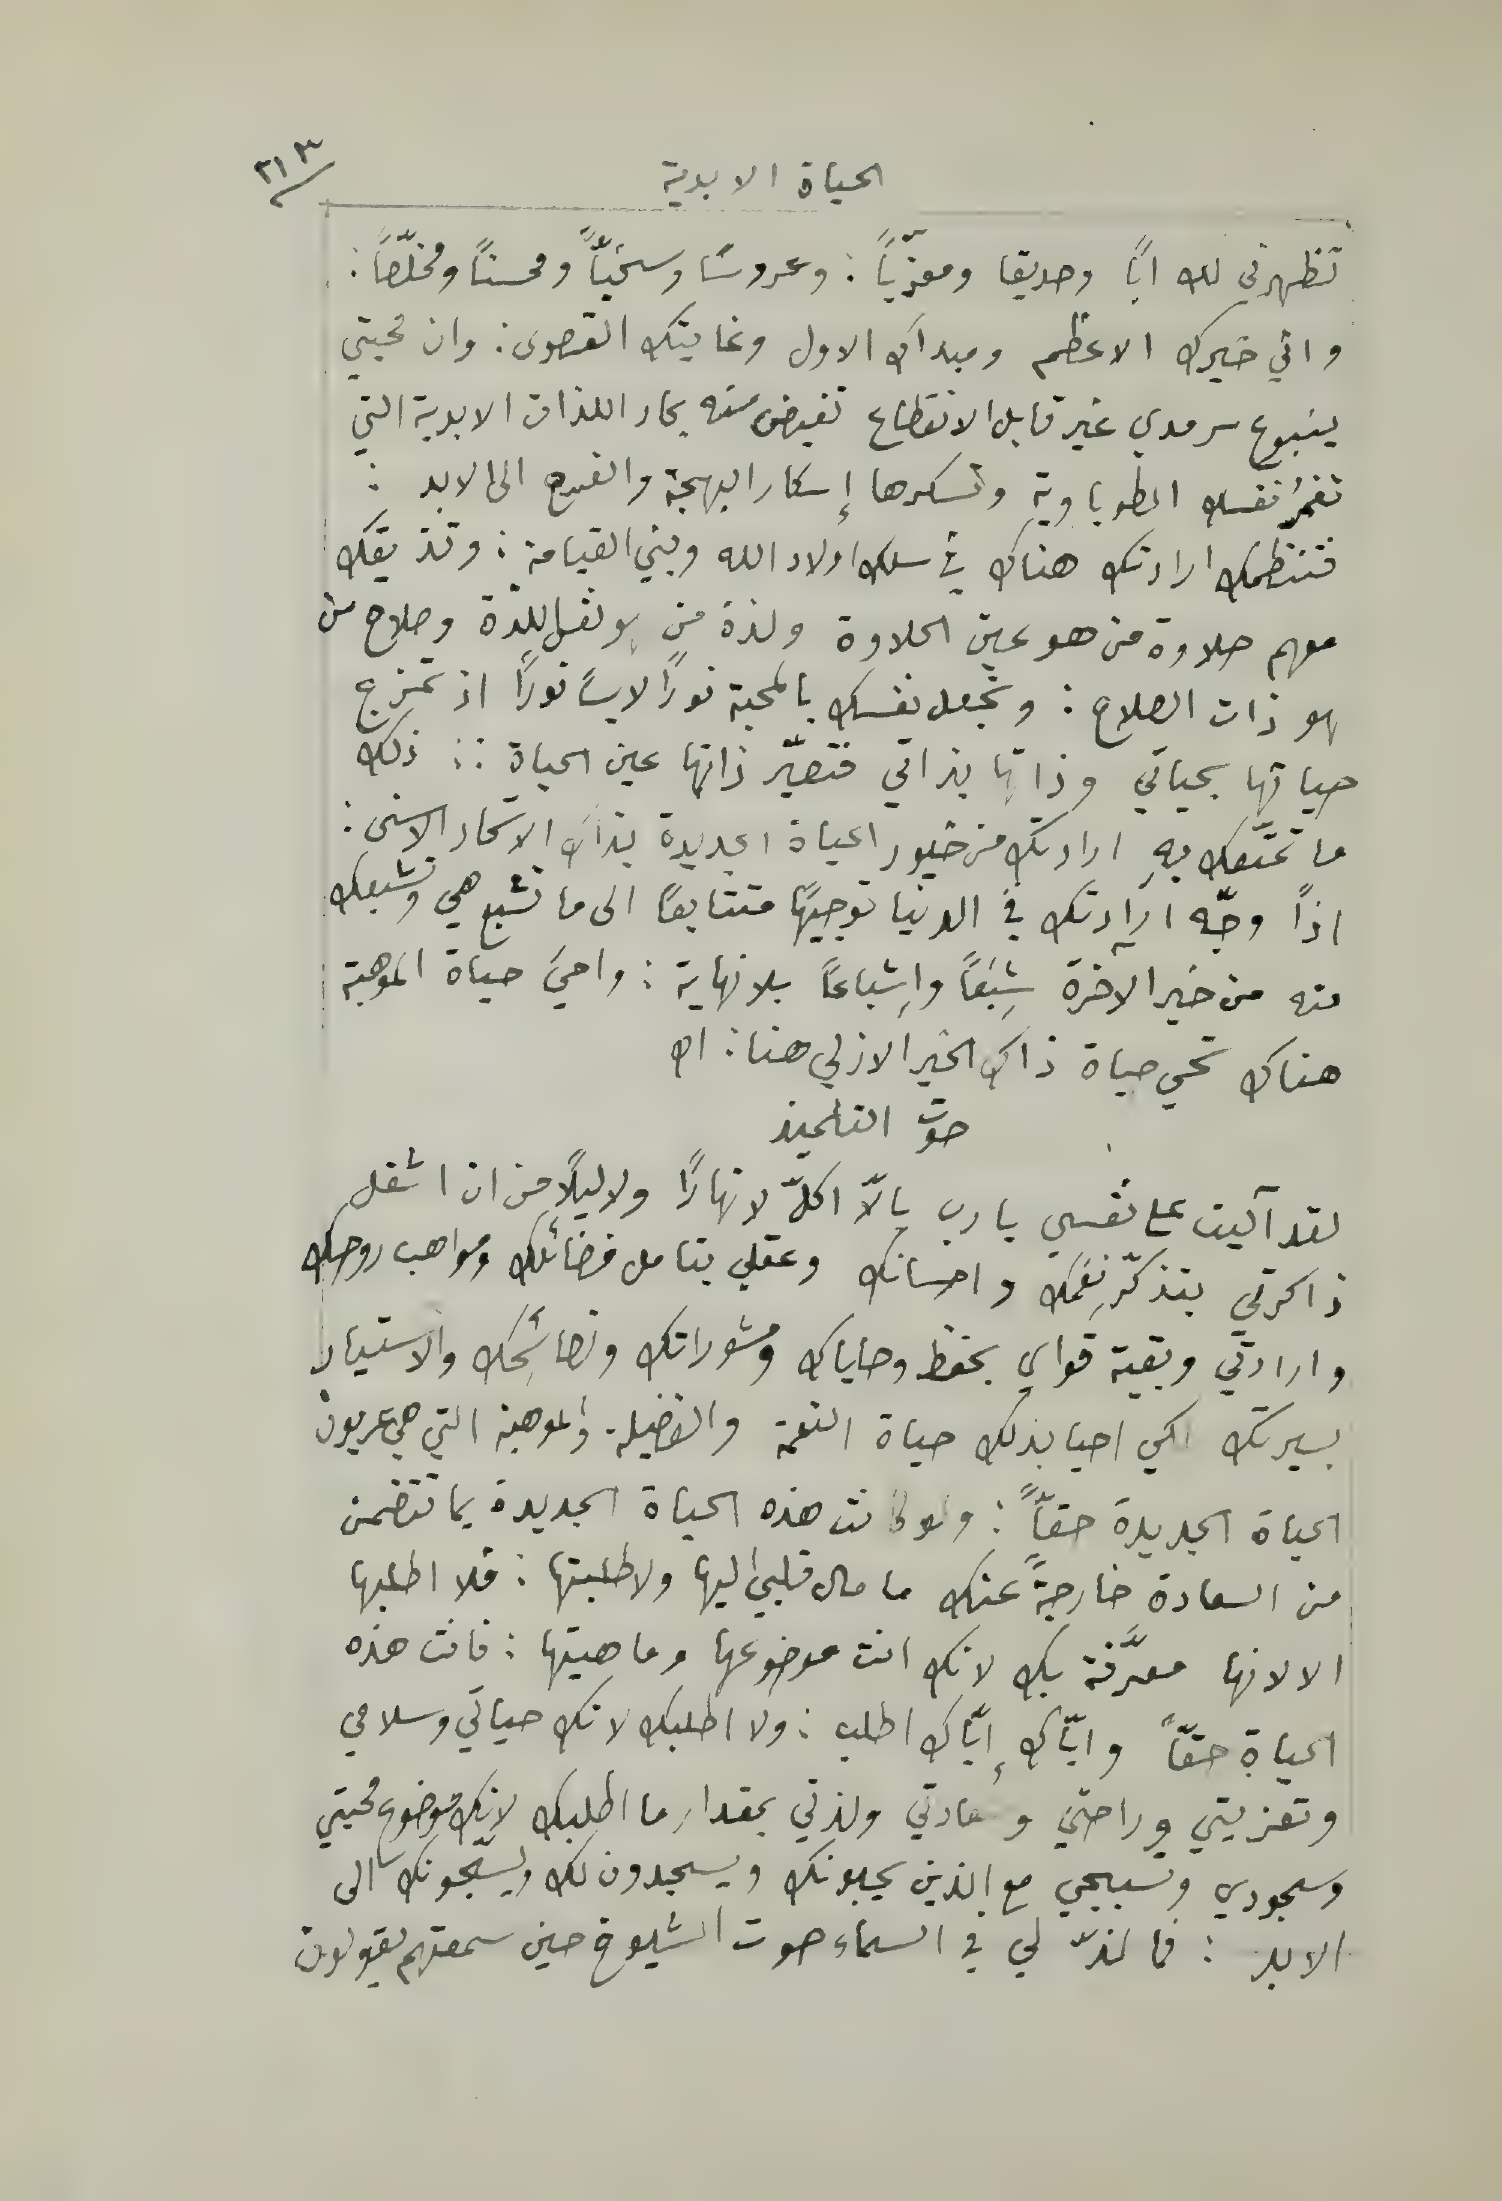 الحياة الابدية
٢١٣
تظهرني لك ابًا وصديقا ومعزّيًا : وعروسًا وسخيًّا ومحسنًا ومخلّصًا :
واني خيرك الاعظم ومبداك الاول وغايتك القصوى : وان محبتي
ينبوع سرمدي غير قابل الانقطاع تفيض منه بحار اللذات الابدية التي
تغمرُ نفسك الطوباوية وتسكرها إسكار البهجة والفرح الى الابد :
فتنظمك ارادتك هناك في سلك اولاد الله وبني القيامة : وتذيقك
معهم حلاوة من هو عين الحلاوة ولذة من هو نفس اللذّة وصلاح من
هو ذات الصلاح : وتجعل نفسك بالمحبة نورًا لابسًا نورًا اذ تمزج
حياتها بحياتي وذاتها بذاتي فتصيّر ذاتها عين الحياة :: ذلك
ما تمتّعك بهِ ارادتك من خيور الحياة الجديدة بذاك الاتحاد الاسنى :
اذًا وجّه ارادتك في الدنيا توجيهًا متتابعًا الى ما تشبع هي وتشبعك
منه من خير الاخرة شِبَعًا وإشباعًا بلا نهاية : واحيَ حياة الموهبة
هناك تحي حياة ذاك الخير الازلي هنا : اه
صوت التلميذ
لقد آليت على نفسي يا رب بالّا اكلّ لا نهارًا ولا ليلًا من ان اشغل
ذاكرتي بتذكّر نِعَمك واحسانك وعقلي بتامل فضائلك ومواهب روحك
وارادتي وبقية قواي بحفظ وصاياك ومشوراتك ونصائحِك والاستيار
بسيرتك لكي احيا بذلك حياة النعمة والفضيلة والموهبة التي هي عربون
الحياة الجديدة حقّاً : ولو كانت هذه الحياة الجديدة بما تتضمن
من السعادة خارجةً عنك ما مال قلبي اليها ولا طلبتها : فلا اطلبها
الا لانها معرَّفة بك لانك انت موضوعها وماهيتها : فانت هذه
الحياة حقّاً وايّاك إيّاك اطلب : ولا اطلبك لانك حياتي وسلامي
وتعزيتي وراحتي وسعادتي ولذتي بمقدار ما اطلبك لانك موضوع محبتي
وسجودي وتسبيحي مع الذين يحبونك ويسجدون لك ويسبّحونك الى
الابد : فما الذّ لي في السماء صوت الشيوخ حين سمعتهم يقولون